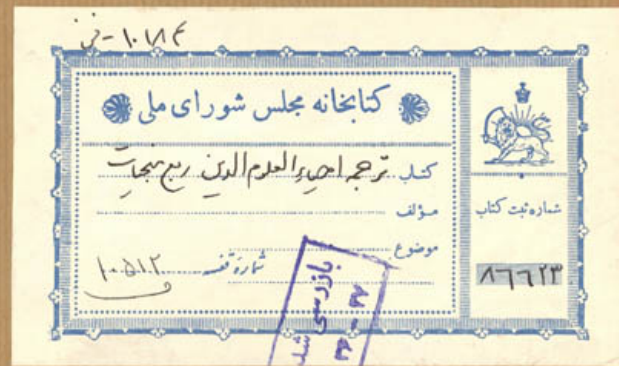 ۱۰۱۸۴ - فن
کتابخانه مجلس شورای ملی
کتاب ترجمه احیاء العلوم الدین ربع منجیات
مؤلف
موضوع
شماره قفسه ۱۰۵۱۲
شماره ثبت کتاب
۸۶۶۲۳
بازرسی شد
۳۶ - ۳۷